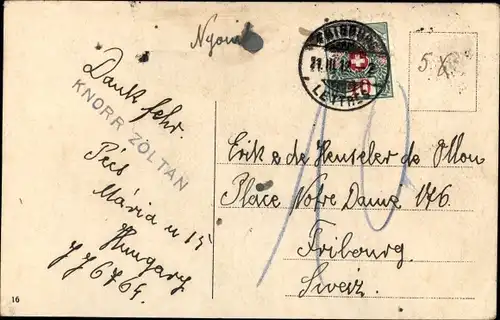 Nyomt
FRIBOURG
21.III.12
LETTRES
10
5 f
Dank sehr.
KNORR ZOLTAN
Pécs
Mária u 15
Hungary
JJ6764.
10
Erik & de Henseler de Mon
Place Notre Dame 176.
Fribourg.
Sveiz.
16